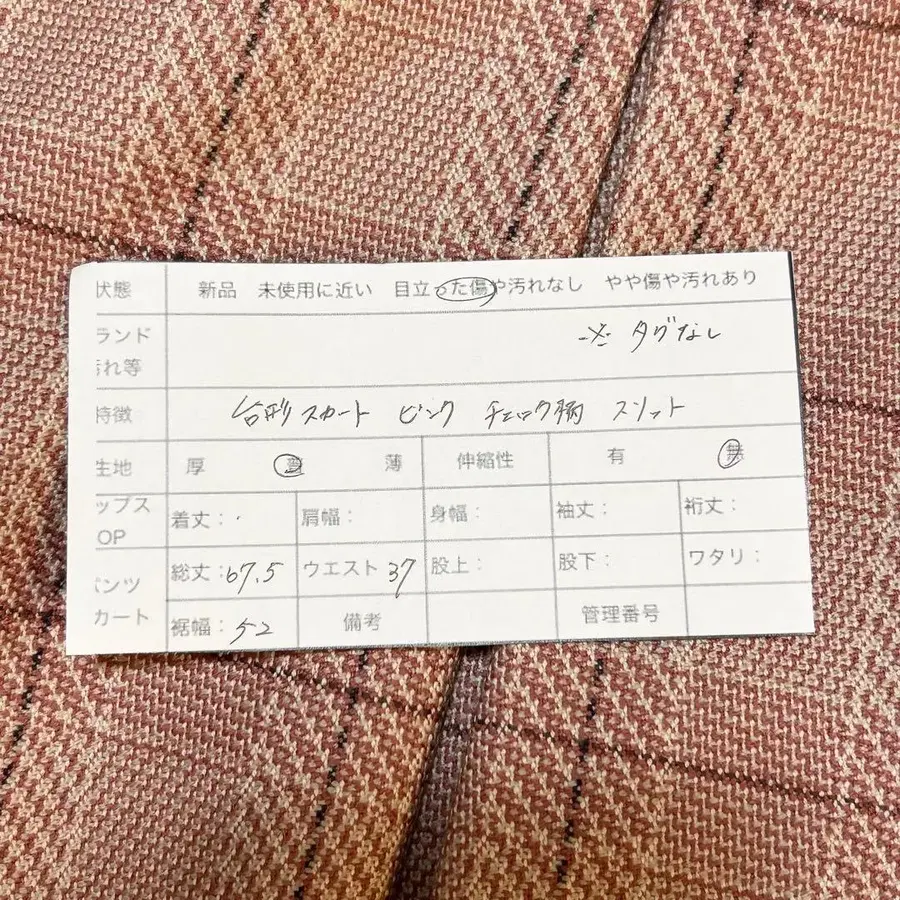 状態 新品 未使用に近い 目立った傷や汚れなし やや傷や汚れあり
ランド
汚れ等 ※ タグなし
特徴 台形スカート ピンク チェック柄 スリット
生地 厚 普 薄 伸縮性 有 無
ップス
OP 着丈: 肩幅: 身幅: 袖丈: 裄丈:
パンツ 総丈:67.5 ウエスト 37 股上: 股下: ワタリ:
カート 裾幅:52 備考 管理番号